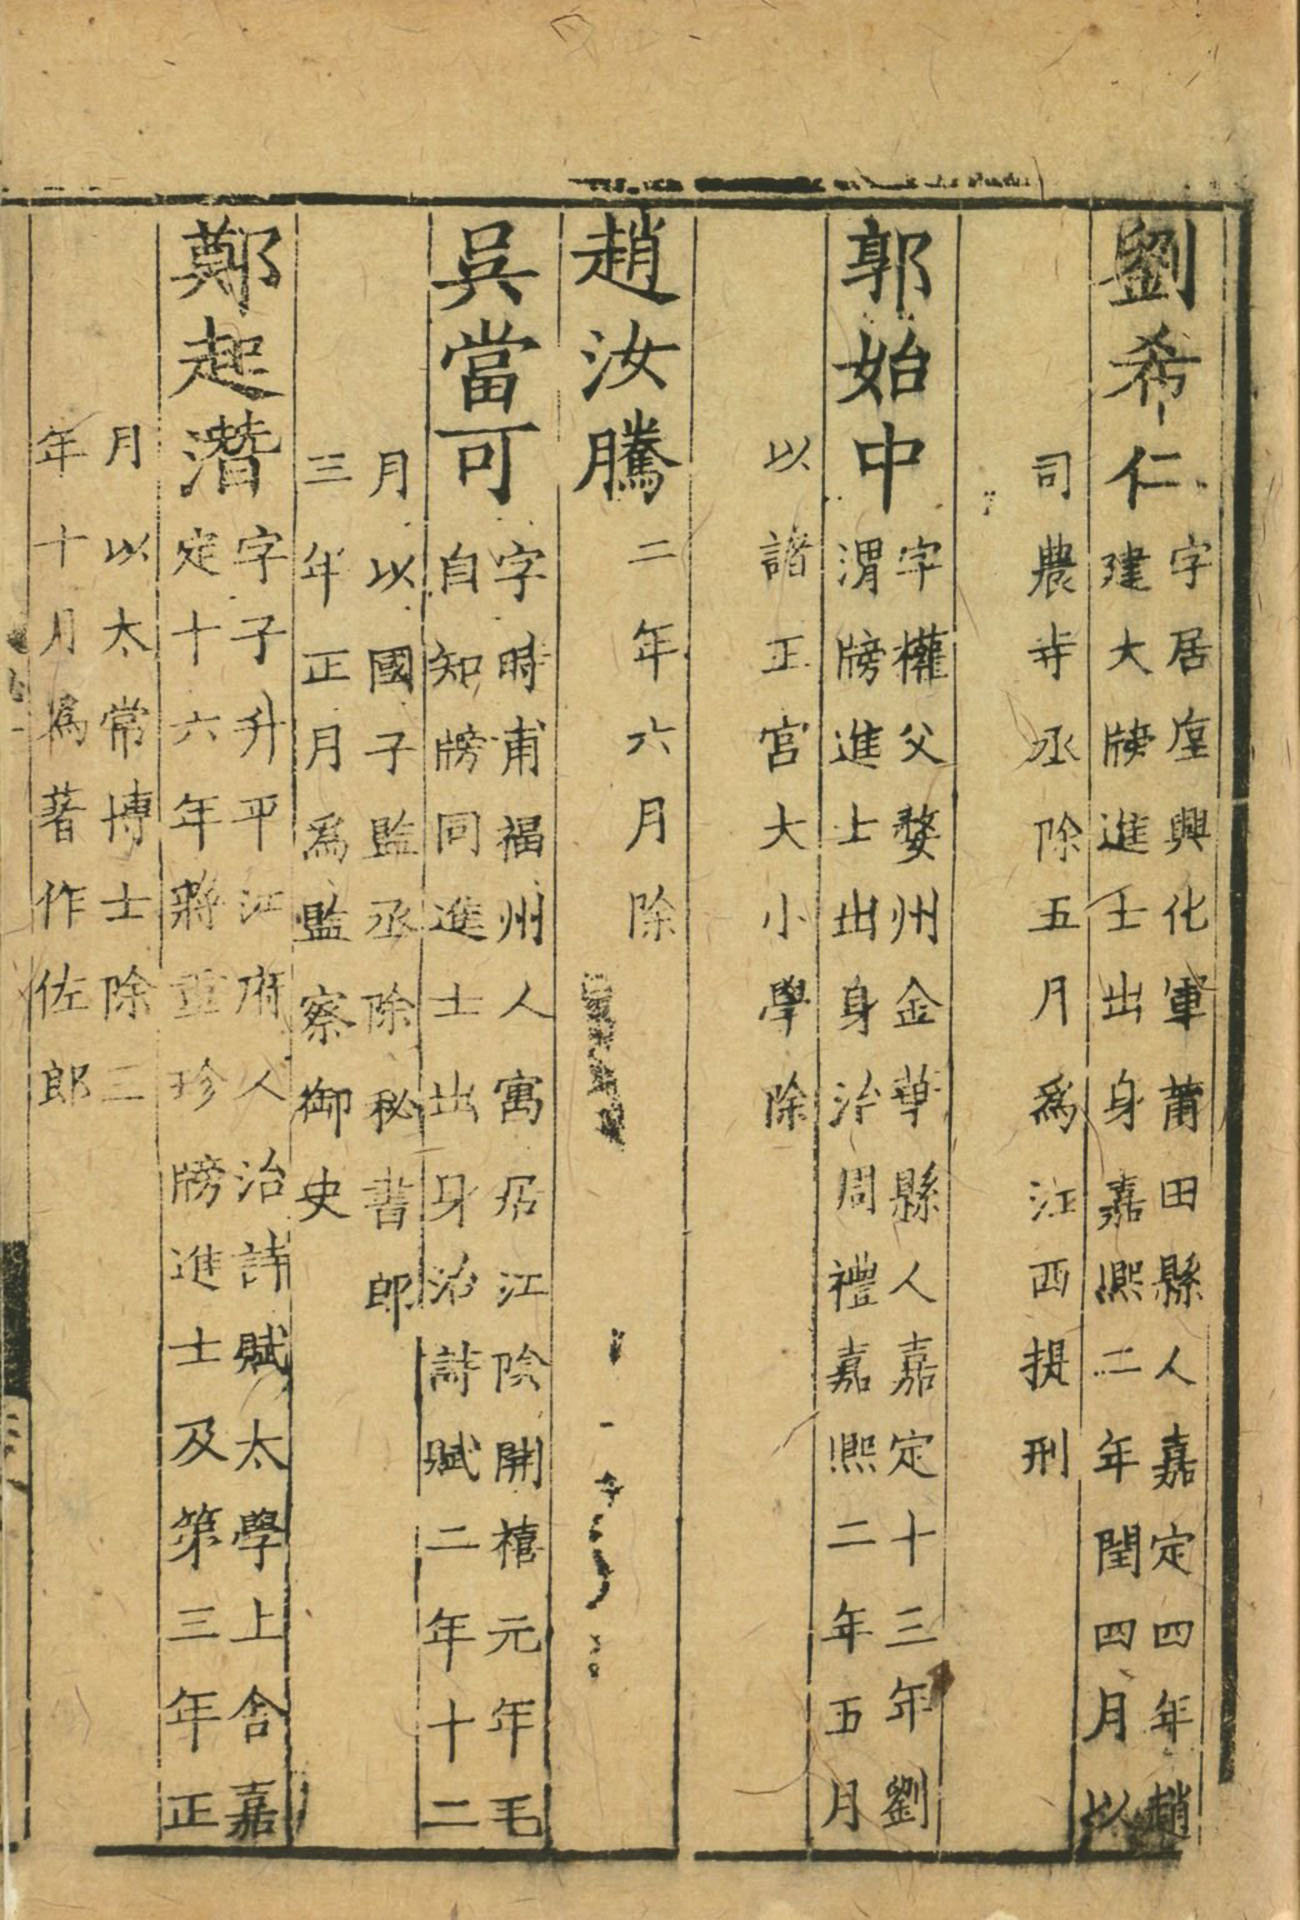 劉希仁
字居垕興化軍莆田縣人嘉定四年趙
建大牓進士出身嘉熙二年閏四月以
司農寺丞除五月爲江西提刑
郭始中
字權父婺州金華縣人嘉定十三年劉
渭牓進士出身治周禮嘉熙二年五月
以諸王宮大小學除
趙汝騰
二年六月除
吳當可
字時甫福州人寓居江陰開禧元年毛
自知牓同進士出身治詩賦二年十二
月以國子監丞除秘書郎
三年正月爲監察御史
鄭起潛
字子升平江府人治詩賦太學上舍嘉
定十六年蔣重珍牓進士及第三年正
月以太常博士除三
年十月爲著作佐郎